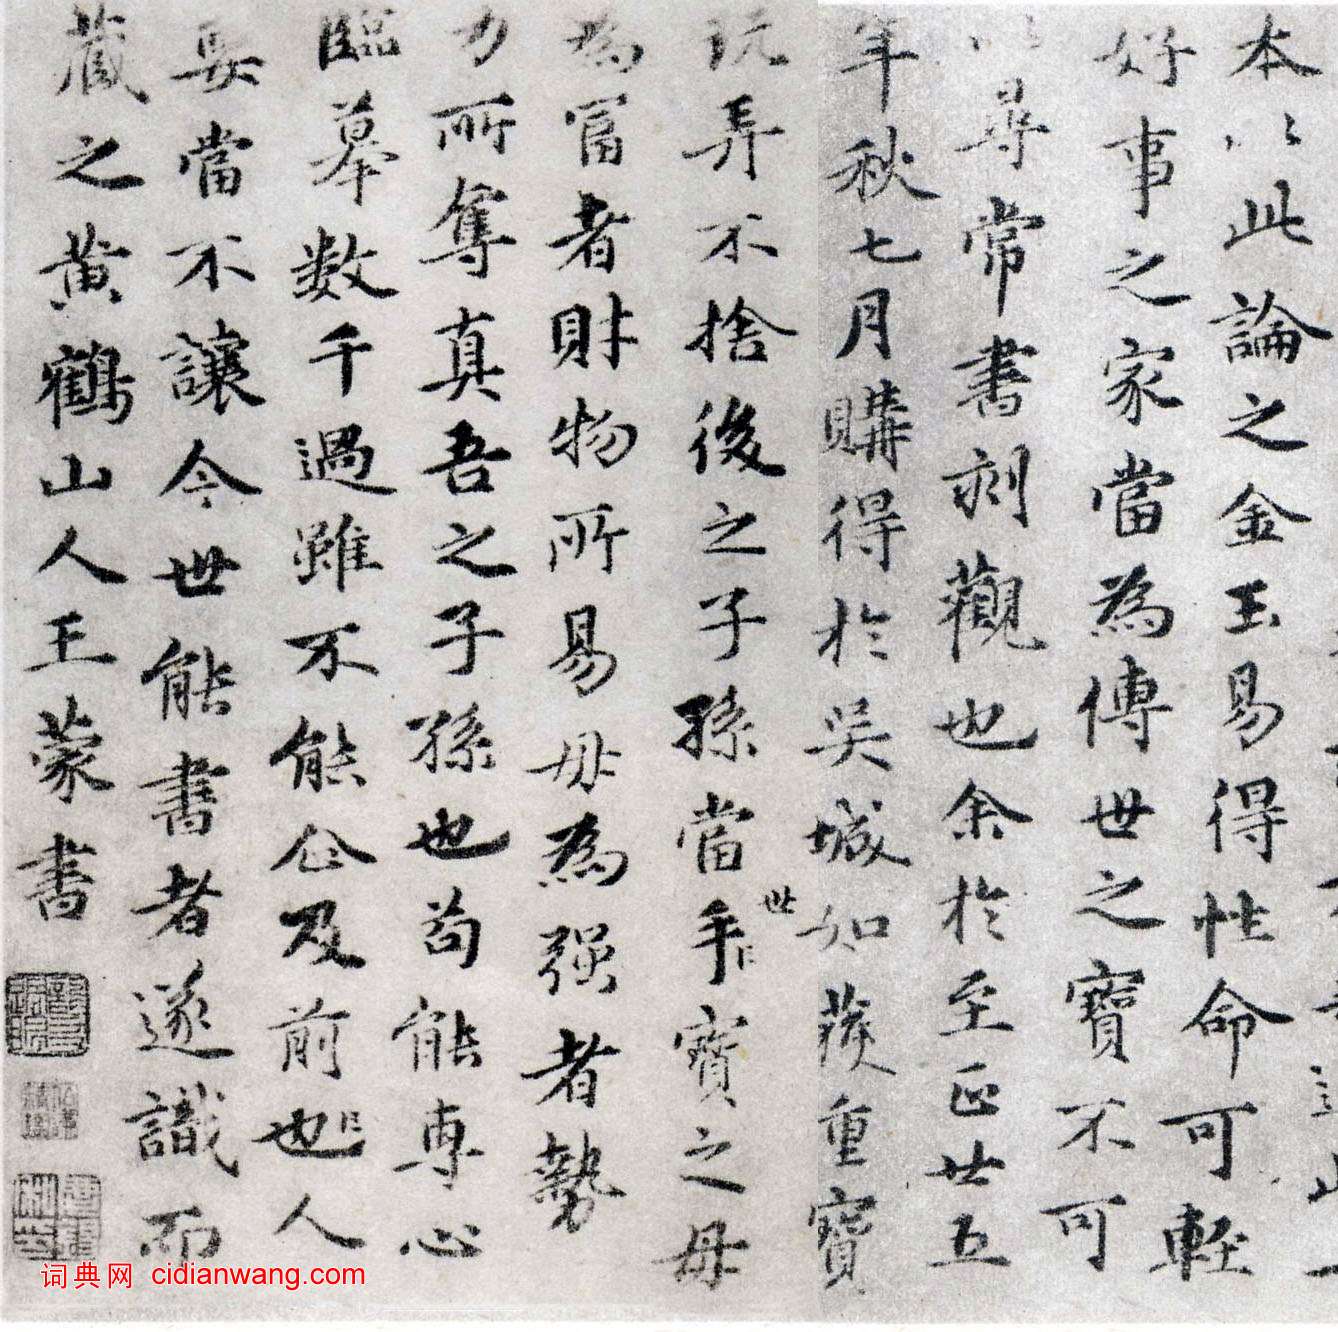 本以此論之金玉易得性命可輕
好事之家當為傳世之寶不可
以尋常書刻觀也余於至正廿五
年秋七月購得於吳城如獲重寶
玩弄不捨後之子孫當世手寶之毋
為富者財物所易毋為强者勢
力所奪真吾之子孫也苟能專心
臨摹数千過雖不能企及前也人
要當不讓今世能書者遂識而
藏之黄鶴山人王蒙書
词典网 cidianwang.com